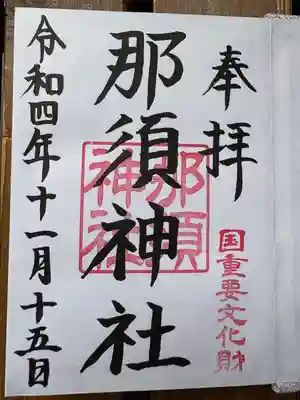 奉拝
国重要文化財
那須神社
那須
神社
令和四年十一月十五日